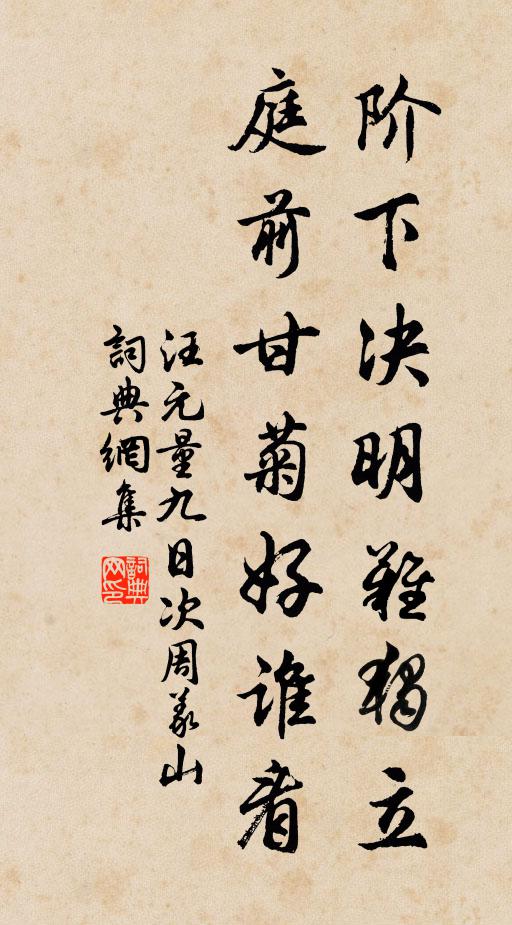 阶下决明难独立
庭前甘菊好谁看
汪元量九日次周义山
詞典網集
詞典网印